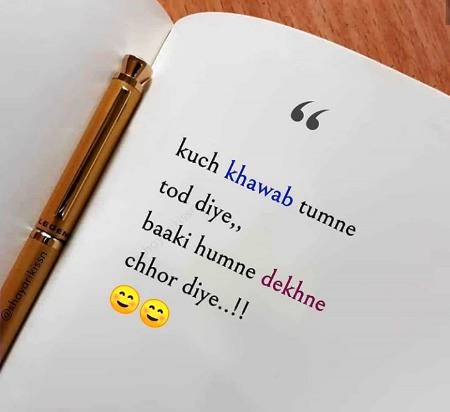 “
kuch khawab tumne
tod diye,,
baaki humne dekhne
chhor diye..!!
😊😊
LEGEN
@shayarikissn